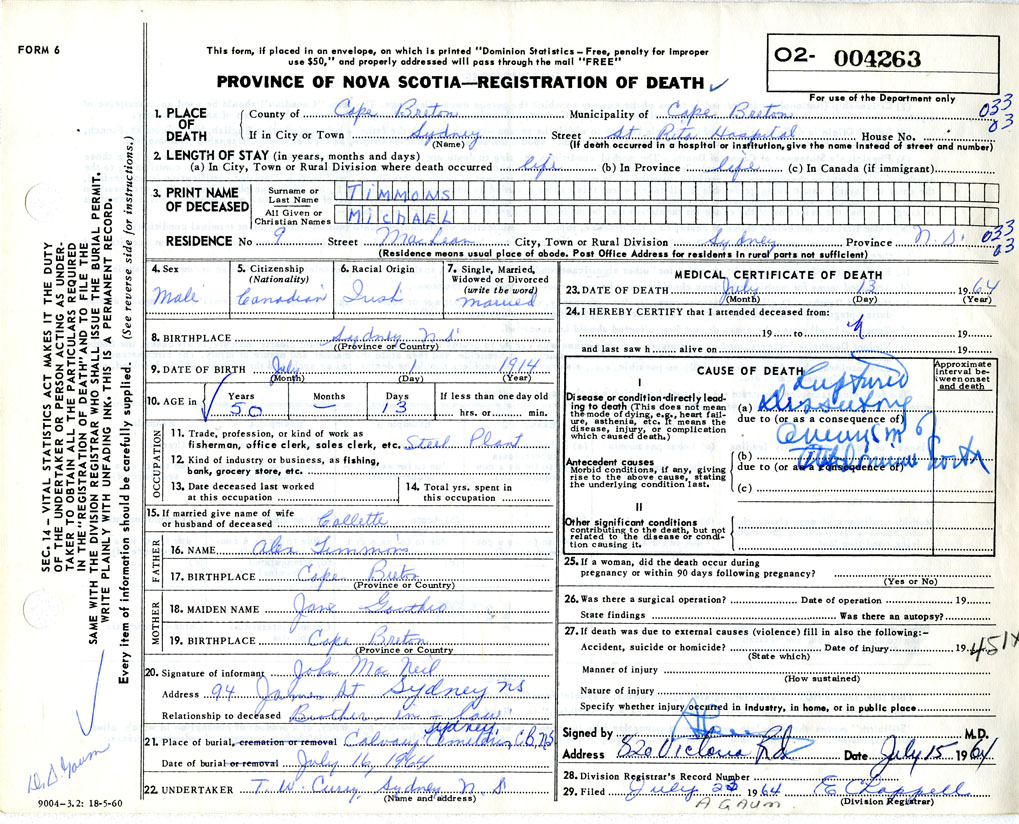 FORM 6
This form, if placed in an envelope, on which is printed "Dominion Statistics – Free, penalty for improper
use $50," and properly addressed will pass through the mail "FREE"
PROVINCE OF NOVA SCOTIA—REGISTRATION OF DEATH
02- 004263
For use of the Department only
033
03
1. PLACE OF DEATH
County of Cape Breton Municipality of Cape Breton
If in City or Town Sydney Street St Rita Hospital House No.
(Name) (If death occurred in a hospital or institution, give the name instead of street and number)
2. LENGTH OF STAY (in years, months and days)
(a) In City, Town or Rural Division where death occurred life (b) In Province life (c) In Canada (if immigrant)
3. PRINT NAME OF DECEASED
Surname or Last Name TIMMONS
All Given or Christian Names MICHAEL
RESIDENCE No 9 Street MacLean City, Town or Rural Division Sydney Province N.S.
033
03
(Residence means usual place of abode. Post Office Address for residents in rural parts not sufficient)
4. Sex
Male
5. Citizenship (Nationality)
Canadian
6. Racial Origin
Irish
7. Single, Married, Widowed or Divorced (write the word)
married
8. BIRTHPLACE Sydney N S
(Province or Country)
9. DATE OF BIRTH July 1 1914
(Month) (Day) (Year)
10. AGE in
Years Months Days If less than one day old
50 – 13 hrs. or min.
OCCUPATION
11. Trade, profession, or kind of work as
fisherman, office clerk, sales clerk, etc. Steel Plant
12. Kind of industry or business, as fishing,
bank, grocery store, etc.
13. Date deceased last worked
at this occupation
14. Total yrs. spent in
this occupation
15. If married give name of wife
or husband of deceased Collette
FATHER
16. NAME Alex Timmons
17. BIRTHPLACE Cape Breton
(Province or Country)
MOTHER
18. MAIDEN NAME Jane
19. BIRTHPLACE Cape Breton
(Province or Country
20. Signature of informant John Mac Neil
Address 94 St Sydney NS
Relationship to deceased Brother in law
21. Place of burial, cremation or removal Calvary Cemetery, Sydney, C.B, NS
Date of burial or removal July 16, 1964
22. UNDERTAKER T. W. Curry Sydney N. S
(Name and address)
MEDICAL CERTIFICATE OF DEATH
23. DATE OF DEATH July 13 1964
(Month) (Day) (Year)
24. I HEREBY CERTIFY that I attended deceased from:
19 to 19
and last saw h alive on 19
CAUSE OF DEATH
Approximate interval between onset and death
I
Disease or condition directly leading to death (This does not mean the mode of dying, e.g., heart failure, asthenia, etc. It means the disease, injury, or complication which caused death.)
Ruptured
(a) Dissecting
due to (or as a consequence of)
Aneurysm of
Antecedent causes
Morbid conditions, if any, giving rise to the above cause, stating the underlying condition last.
(b) Abdominal Aorta
due to (or as a consequence of)
(c)
II
Other significant conditions
contributing to the death, but not related to the disease or condition causing it.
25. If a woman, did the death occur during
pregnancy or within 90 days following pregnancy?
(Yes or No)
26. Was there a surgical operation? Date of operation 19
State findings Was there an autopsy?
27. If death was due to external causes (violence) fill in also the following:–
Accident, suicide or homicide? Date of injury 19
(State which)
Manner of injury
(How sustained)
Nature of injury
Specify whether injury occurred in industry, in home, or in public place
Signed by M.D.
Address 820 Victoria Rd Date July 15 1964
28. Division Registrar's Record Number
29. Filed July 1964 E Chappell
(Division Registrar)
A GAUM.
SEC. 14 – VITAL STATISTICS ACT MAKES IT THE DUTY
OF THE UNDERTAKER OR PERSON ACTING AS UNDER-
TAKER TO OBTAIN ALL THE PARTICULARS REQUIRED
IN THE "REGISTRATION OF DEATH" AND TO FILE THE
SAME WITH THE DIVISION REGISTRAR WHO SHALL ISSUE THE BURIAL PERMIT.
WRITE PLAINLY WITH UNFADING INK. THIS IS A PERMANENT RECORD.
Every item of information should be carefully supplied. (See reverse side for instructions.)
Gaum
9004–3.2: 18-5-60